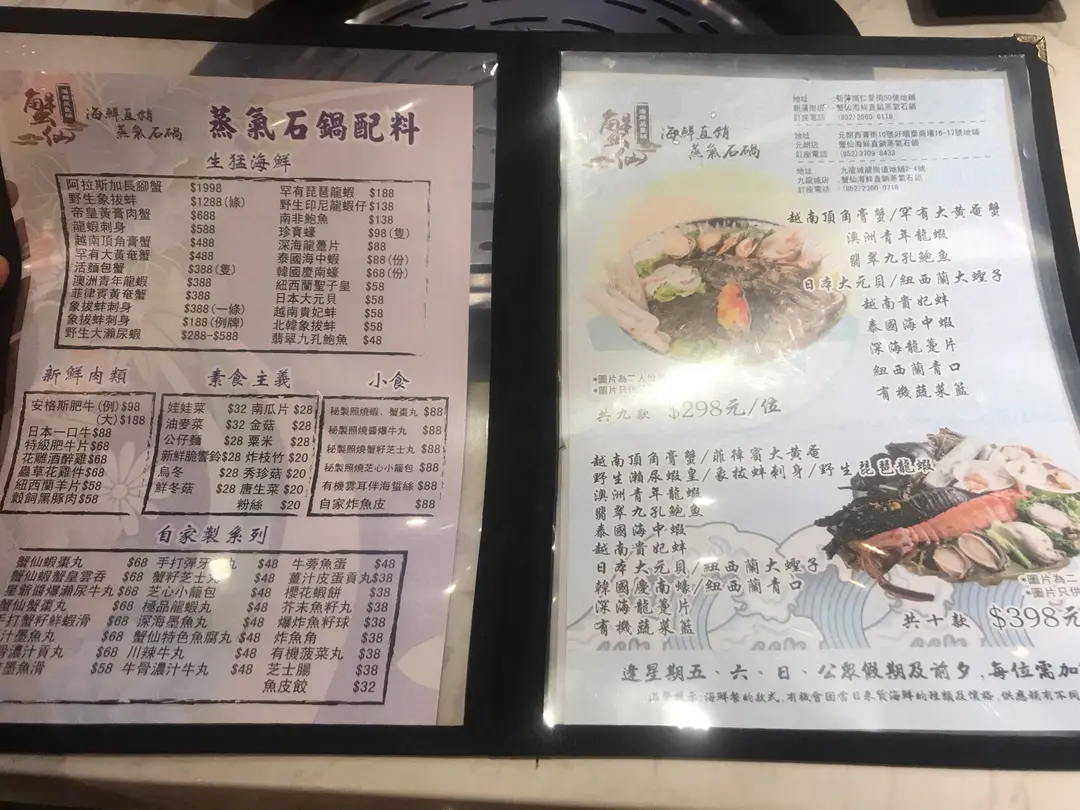 蟹仙
海鮮直銷
蒸氣石鍋
蒸氣石鍋配料
生猛海鮮
阿拉斯加長腳蟹 $1998
野生象拔蚌 $1288(條)
帝皇黃膏肉蟹 $688
龍蝦刺身 $588
越南頂角膏蟹 $488
罕有大黃奄蟹 $488
活麵包蟹 $388(隻)
澳洲青年龍蝦 $388
菲律賓黃奄蟹 $388
象拔蚌刺身 $388(一條)
象拔蚌刺身 $188(例牌)
野生大瀨尿蝦 $288-$588
罕有琵琶龍蝦 $188
野生印尼龍蝦仔 $138
南非鮑魚 $138
珍寶蠔 $98(隻)
深海龍躉片 $88
泰國海中蝦 $88(份)
韓國慶南蠔 $68(份)
紐西蘭聖子皇 $58
日本大元貝 $58
越南貴妃蚌 $58
北韓象拔蚌 $58
翡翠九孔鮑魚 $48
新鮮肉類
安格斯肥牛 (例)$98
(大)$188
日本一口牛$88
特級肥牛片$68
花雕酒醉雞$68
蟲草花雞件$68
紐西蘭羊片$58
穀飼黑豚肉$58
素食主義
娃娃菜 $32 南瓜片 $28
油麥菜 $32 金菇 $28
公仔麵 $28 粟米 $28
新鮮脆響鈴$28 炸枝竹 $20
烏冬 $28 秀珍菇 $20
鮮冬菇 $28 唐生菜 $20
粉絲 $20
小食
秘製照燒蝦、蟹棗丸 $88
秘製照燒醬爆牛丸 $88
秘製照燒蟹籽芝士丸 $88
秘製照燒芝心小籠包 $88
有機雲耳伴海蜇絲 $88
自家炸魚皮 $88
自家製系列
蟹仙蝦棗丸 $68
蟹仙蝦蟹皇雲吞 $68
皇爺醬爆瀨尿牛丸 $68
蟹仙蟹棗丸 $68
手打蟹籽鮮蝦滑 $68
汁墨魚丸 $68
濃汁貢丸 $68
墨魚滑 $58
手打彈牙 丸 $48
蟹籽芝士丸 $48
芝心小籠包 $48
極品龍蝦丸 $48
深海墨魚丸 $48
蟹仙特色魚腐丸 $48
川辣牛丸 $48
牛骨濃汁牛丸 $48
牛蒡魚蛋 $48
薑汁皮蛋貢丸$38
櫻花蝦餅 $38
芥末魚籽丸 $38
爆炸魚籽球 $38
炸魚角 $38
有機菠菜丸 $38
芝士腸 $38
魚皮餃 $32
蟹仙
海鮮直銷
蒸氣石鍋
地址 :新蒲崗仁愛街50號地舖
新蒲崗店 :蟹仙海鮮直銷蒸氣石鍋
訂座電話 :(852)2560 6118
地址 :元朗西菁街10號好順泰商場16-17號地舖
元朗店 :蟹仙海鮮直銷蒸氣石鍋
訂座電話 :(852)3709 8433
地址 :九龍城龍崗道地舖2-4號
九龍城店 :蟹仙海鮮直銷蒸氣石鍋
訂座電話 :(852)2360 0718
越南頂角膏蟹/罕有大黃奄蟹
澳洲青年龍蝦
翡翠九孔鮑魚
日本大元貝/紐西蘭大蟶子
越南貴妃蚌
泰國海中蝦
深海龍躉片
紐西蘭青口
有機蔬菜籃
*圖片為二人份
*圖片只供
共九款 $298元/位
越南頂角膏蟹/菲律賓大黃奄
野生瀨尿蝦皇/象拔蚌刺身/野生琵琶龍蝦
澳洲青年龍蝦
翡翠九孔鮑魚
泰國海中蝦
越南貴妃蚌
日本大元貝/紐西蘭大蟶子
韓國慶南蠔/紐西蘭青口
深海龍躉片
有機蔬菜籃
*圖片為二
*圖片只供
共十款 $398元
逢星期五、六、日、公眾假期及前夕,每位需加
海鮮餐的款式,有機會因當日來貨海鮮的種類及價格,供應稍有不同